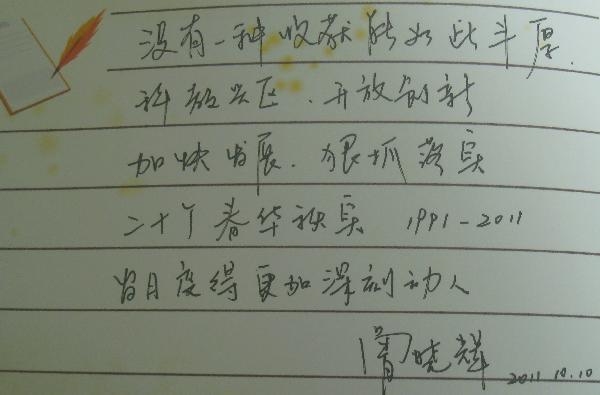 没有一种收获能如此丰厚.
科教兴区、开放创新
加快发展、狠抓落实
二十个春华秋实 1991-2011
岁月变得更加深刻动人
晓辉 2011.10.10